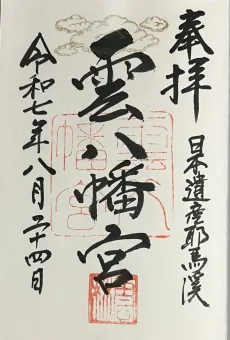 奉拝
日本遺産耶馬渓
雲八幡宮
令和七年八月二十四日